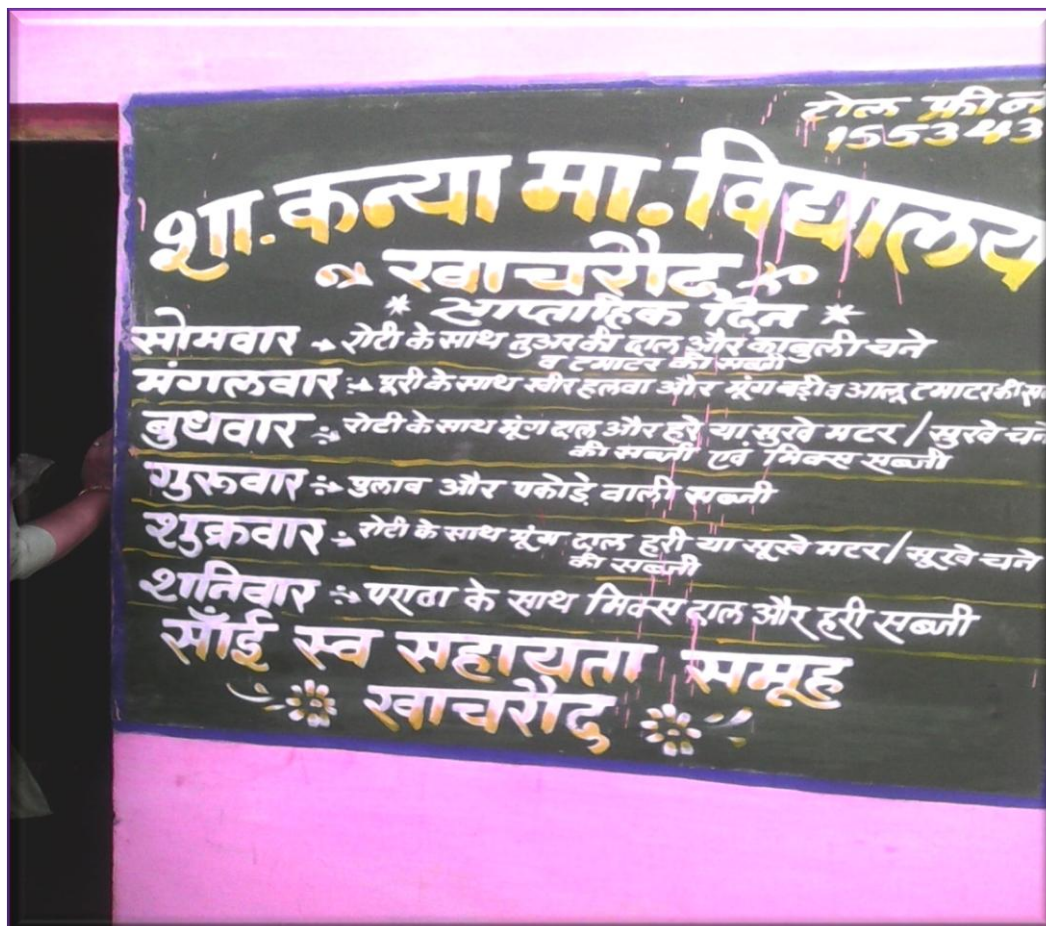 टोल फ्री नं
155343
शा. कन्या मा. विद्यालय
खाचरौद
* साप्ताहिक दिन *
सोमवार → रोटी के साथ तुअर की दाल और काबुली चने
व टमाटर की सब्जी
मंगलवार :→ पूरी के साथ खीर हलवा और मूंग बड़ी व आलू टमाटर की
बुधवार ÷ रोटी के साथ मूंग दाल और हरे या सुखे मटर / सुखे चने
की सब्जी एवं मिक्स सब्जी
गुरूवार ÷ पुलाव और पकोड़े वाली सब्जी
शुक्रवार ÷ रोटी के साथ मूंग दाल हरी या सूखे मटर / सूखे चने
की सब्जी
शनिवार ÷ पराठा के साथ मिक्स दाल और हरी सब्जी
साँई स्व सहायता समूह
खाचरौद